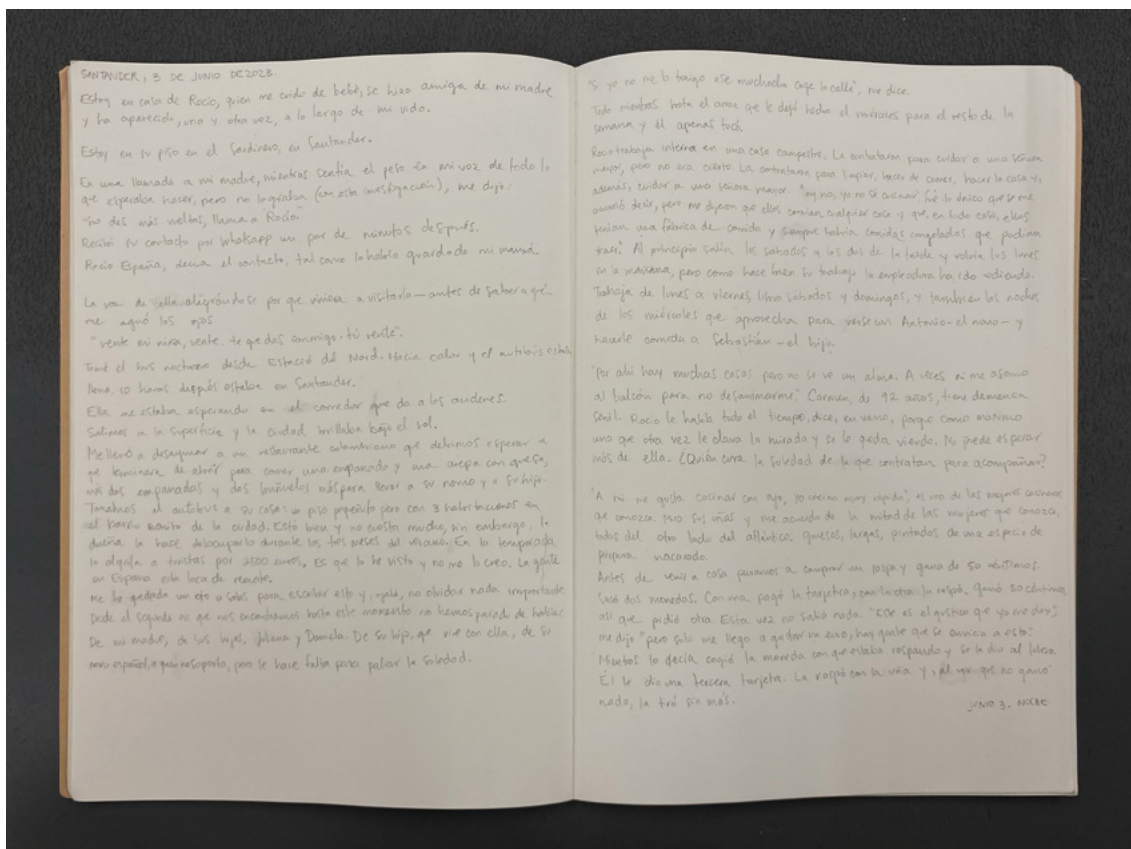 SANTANDER, 3 DE JUNIO DE 2023.
Estoy en casa de Rocío, quien me cuidó de bebé, se hizo amiga de mi madre
y ha aparecido, una y otra vez, a lo largo de mi vida.
Estoy en su piso en el Sardinero, en Santander.
En una llamada a mi madre, mientras sentía el peso en mi voz de todo lo
que esperaba hacer, pero no lograba (en esta investigación), me dijo:
"no des más vueltas, llama a Rocío".
Recibí su contacto por Whatsapp un par de minutos después.
Rocío España, decía el contacto, tal como lo había guardado mi mamá.
La voz de ella alegrándose por que viniera a visitarla — antes de saber a qué —
me aguó los ojos
"vente mi niña, vente. te quedas conmigo. tú vente".
Tomé el bus nocturno desde Estació del Nord. Hacía calor y el autobús estaba
lleno. 10 horas después estaba en Santander.
Ella me estaba esperando en el corredor que da a los andenes.
Salimos a la superficie y la ciudad brillaba bajo el sol.
Me llevó a desayunar a un restaurante colombiano que debimos esperar a
que terminara de abrir para comer una empanada y una arepa con queso,
más dos empanadas y dos buñuelos más para llevar a su novio y a su hijo.
Tomamos el autobús a su casa: un piso pequeñito pero con 3 habitaciones en
el barrio bonito de la ciudad. Está bien y no cuesta mucho, sin embargo, la
dueña la hace desocuparlo durante los tres meses del verano. En la temporada
lo alquila a turistas por 2500 euros. Es que lo he visto y no me lo creo. La gente
en España está loca de remate.
Me he quedado un rato a solas para escribir esto y, ojalá, no olvidar nada importante.
Desde el segundo en que nos encontramos hasta este momento no hemos parado de hablar.
De mi madre, de sus hijas, Johana y Daniela. De su hijo, que vive con ella, de su
novio español, a quien no soporta, pero le hace falta para paliar la soledad.
"Si yo no me lo traigo ese muchacho coge la calle", me dice.
Todo mientras bota el arroz que le dejó hecho el miércoles para el resto de la
semana y él apenas tocó.
Rocío trabaja interna en una casa campestre. La contrataron para cuidar a una señora
mayor, pero no era cierto. La contrataron para limpiar, hacer de comer, hacer la casa y,
además, cuidar a una señora mayor. "ay no, yo no sé cocinar, fue lo único que se me
ocurrió decir, pero me dijeron que ellos comían cualquier cosa y que, en todo caso, ellos
tenían una fábrica de comida y siempre habría comidas congeladas que podían
traer". Al principio salía los sábados a las dos de la tarde y volvía los lunes
en la mañana, pero como hace bien su trabajo la empleadora ha ido cediendo.
Trabaja de lunes a viernes, libra sábados y domingos, y también las noches
de los miércoles que aprovecha para verse con Antonio - el novio - y
hacerle comida a Sebastián - el hijo.
"Por ahí hay muchas casas pero no se ve un alma. A veces ni me asomo
al balcón para no desanimarme". Carmen, de 92 años, tiene demencia
senil. Rocío le habla todo el tiempo, dice, en vano, porque como máximo
una que otra vez le clava la mirada y se la queda viendo. No puede esperar
más de ella. ¿Quién cura la soledad de la que contratan para acompañar?
"A mí me gusta cocinar con ajo, yo cocino muy rápido", es una de las mejores cocineras
que conozco. Miro sus uñas y me acuerdo de la mitad de las mujeres que conozco,
todas del otro lado del atlántico, gruesas, largas, pintadas de una especie de
púrpura nacarado.
Antes de venir a casa paramos a comprar un raspa y gana de 50 céntimos.
Sacó dos monedas. Con una pagó la tarjetica, con la otra la raspó, ganó 50 céntimos
así que pidió otra. Esta vez no salió nada. "Este es el gustico que yo me doy",
me dijo "pero solo me llego a gastar un euro, hay gente que se envicia a esto".
Mientras lo decía cogió la moneda con que estaba raspando y se la dio al
Él le dio una tercera tarjeta. La raspó con la uña y, al ver que no ganó
nada, la tiró sin más.
JUNIO 3. NOCHE